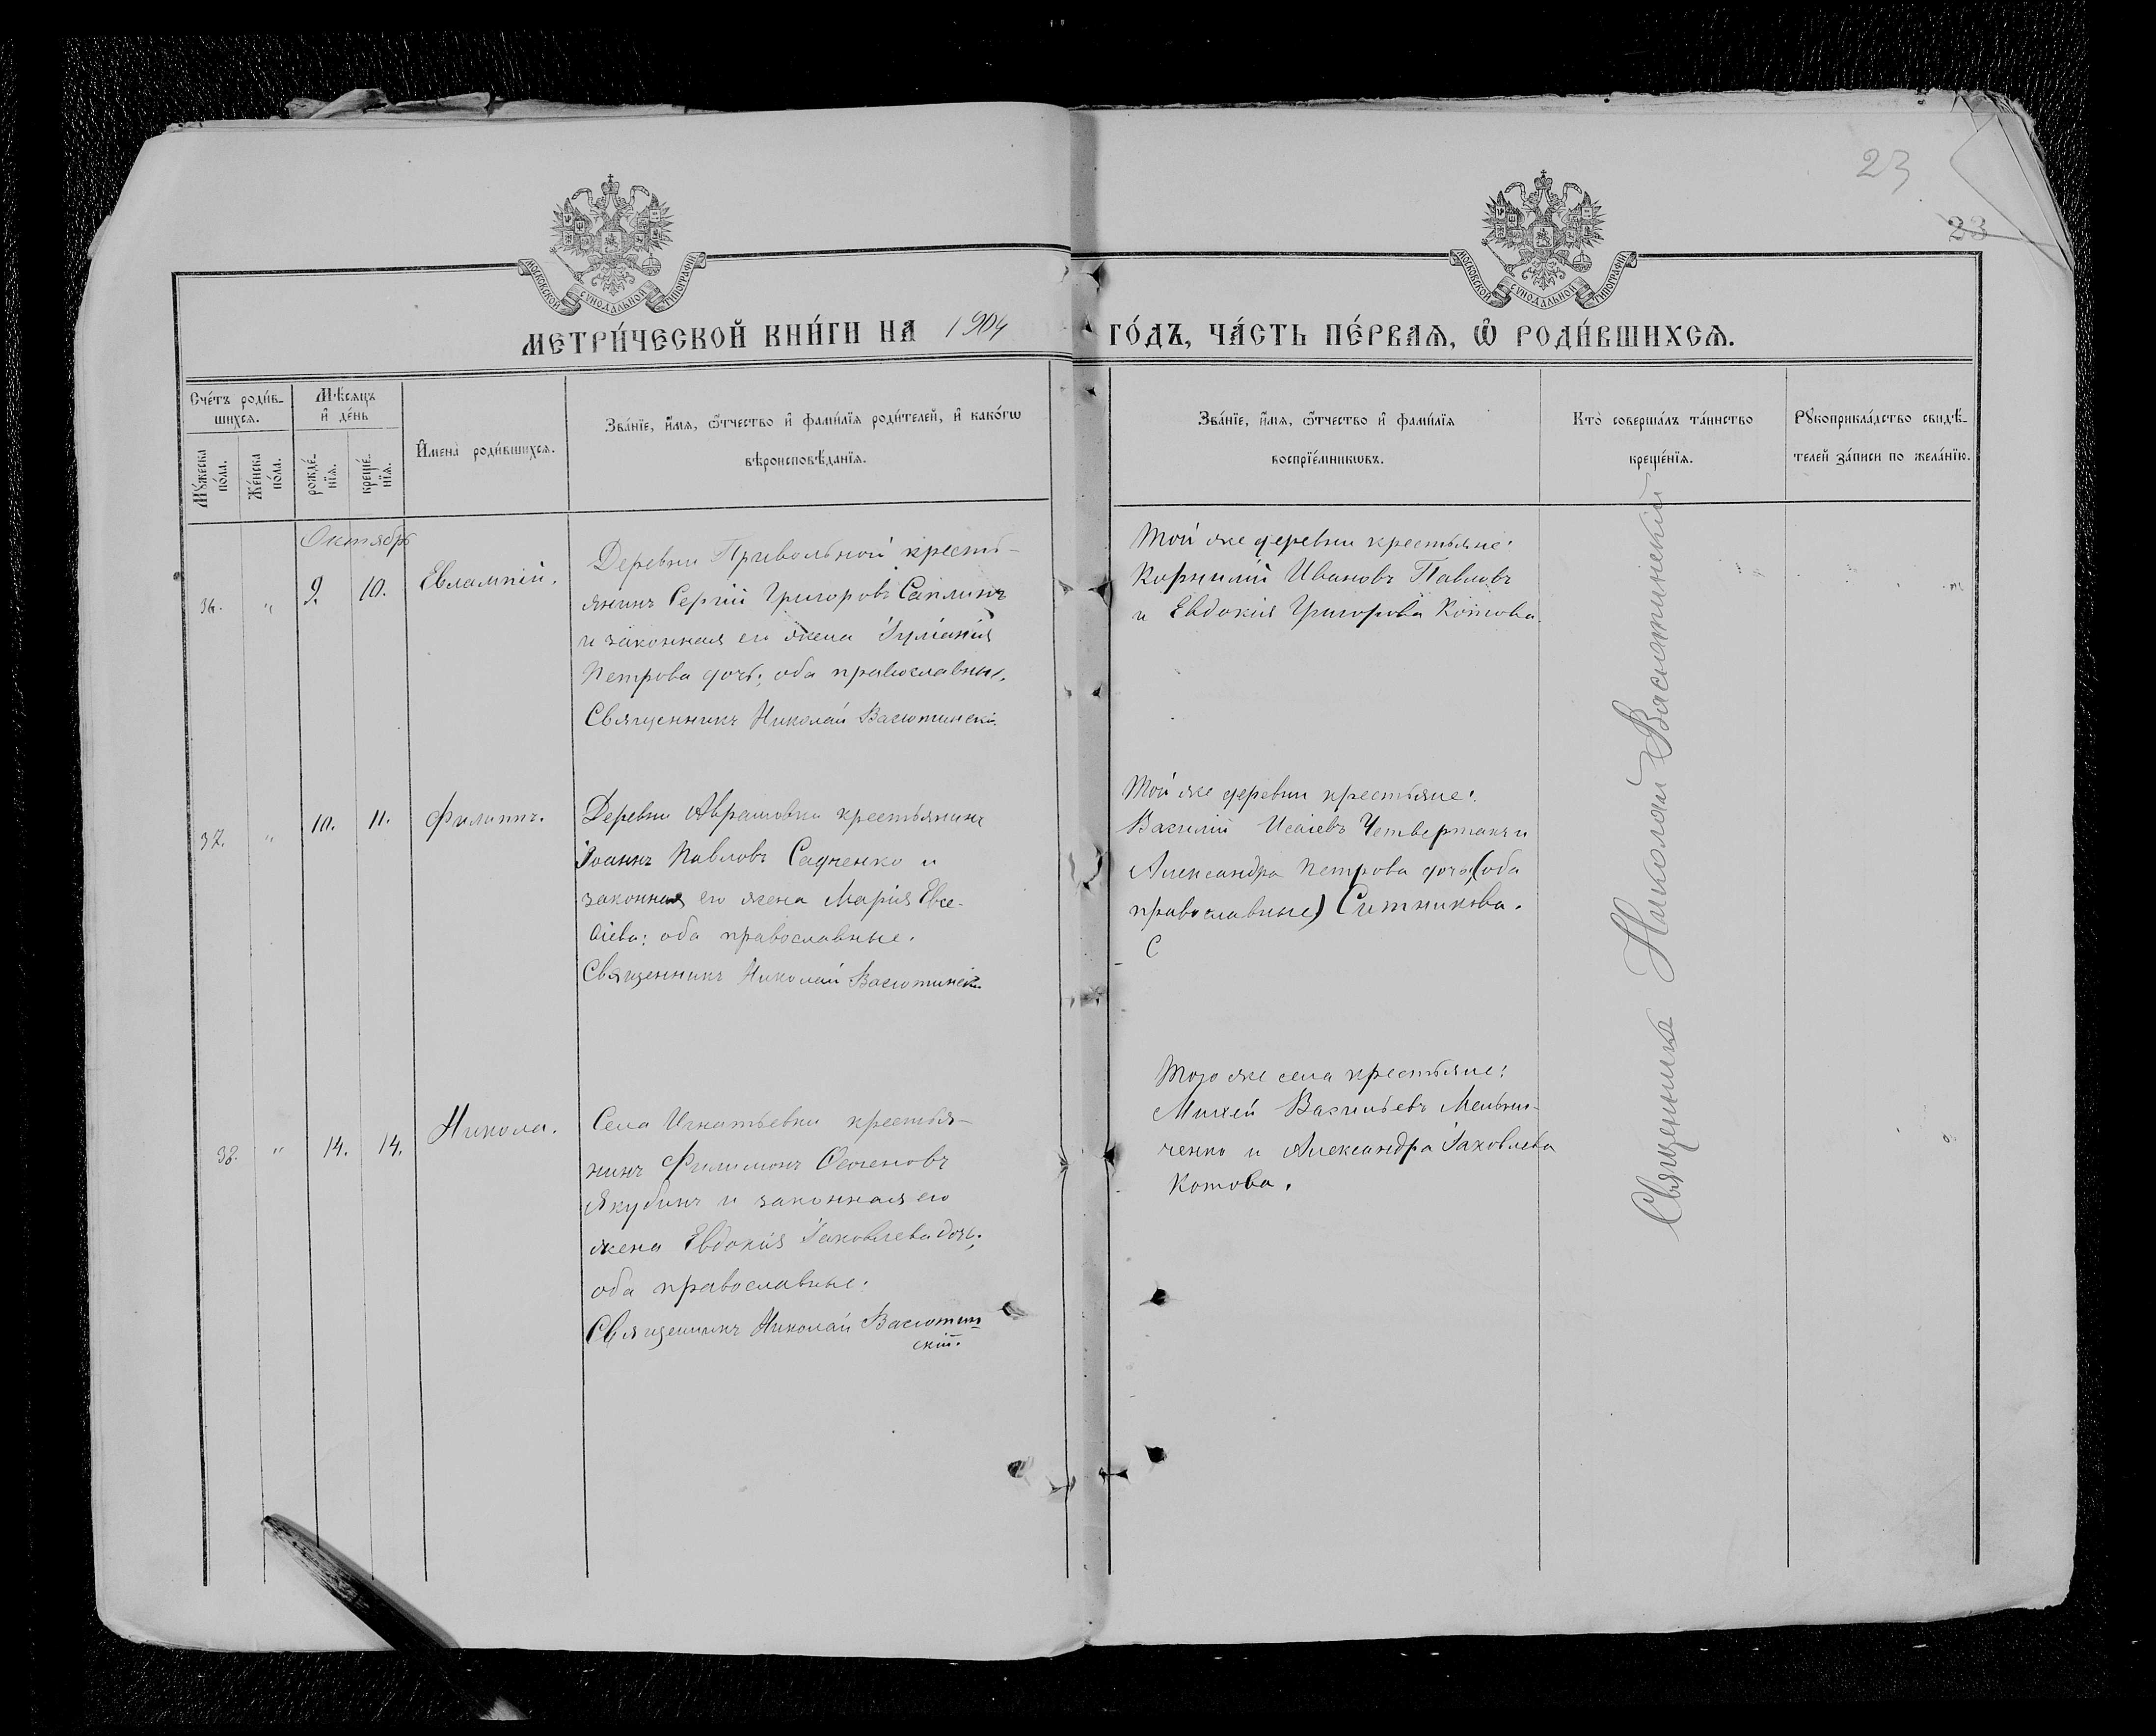 23
23
МОСКОВСКОЙ СУНОДАЛЬНОЙ ТИПОГРАФІИ
МОСКОВСКОЙ СУНОДАЛЬНОЙ ТИПОГРАФІИ
МЕТРИ́ЧЕСКОЙ КНИ́ГИ НА 1904 ГО́ДЪ, ЧА́СТЬ ПЕ́РВАѦ, Ѿ РОДИ́ВШИХСѦ.
Сче́тъ роди́в-
шихсѧ.
Мꙋ́жеска
по́ла.
Же́нска
по́ла.
Мѣ́сѧцъ
и҆ де́нь
рожде́-
нїѧ.
креще́-
нїѧ.
И҆мена̀ роди́вшихсѧ.
Зва́нїе, и҆́мѧ, ѻ҆́тчество и҆ фами́лїѧ роди́телей, и҆ како́гѡ
вѣроисповѣ́данїѧ.
Зва́нїе, и҆́мѧ, ѻ҆́тчество и҆ фами́лїѧ
воспрїе́мникѡвъ.
Кто̀ соверша́лъ та́инство
креще́нїѧ.
Рꙋкоприкла́дство свидѣ́-
телей за́писи по жела́нїю.
Октябрь
36. " 9. 10. Евлампій.
Деревни Привольной кресть-
янинъ Сергій Григоровъ Саплинъ
и законная его жена Іуліанія
Петрова дочь; оба православны.
Священникъ Николай Васютинскій.
Той же деревни крестьяне:
Корнилій Ивановъ Павловъ
и Евдокія Григорова Котова.
37. " 10. 11. Филиппъ.
Деревни Аврамовки крестьянинъ
Іоаннъ Павловъ Садченко и
законная его жена Марія Евсе-
віева; оба православные.
Священникъ Николай Васютинскій
Той же деревни крестьяне:
Василій Исаіевъ Четвертакъ и
Александра Петрова дочь (оба
православные) Ситникова.
С
38. " 14. 14. Никола.
Села Игнатьевки крестья-
нинъ Филимонъ Семеновъ
Якубинъ и законная его
жена Евдокія Іаковлева дочь;
оба православные.
Священникъ Николай Васютин-
скій.
Того же села крестьяне:
Михей Васильевъ Мельни-
ченко и Александра Іаковлева
Котова.
Священникъ Николай Васютинскій